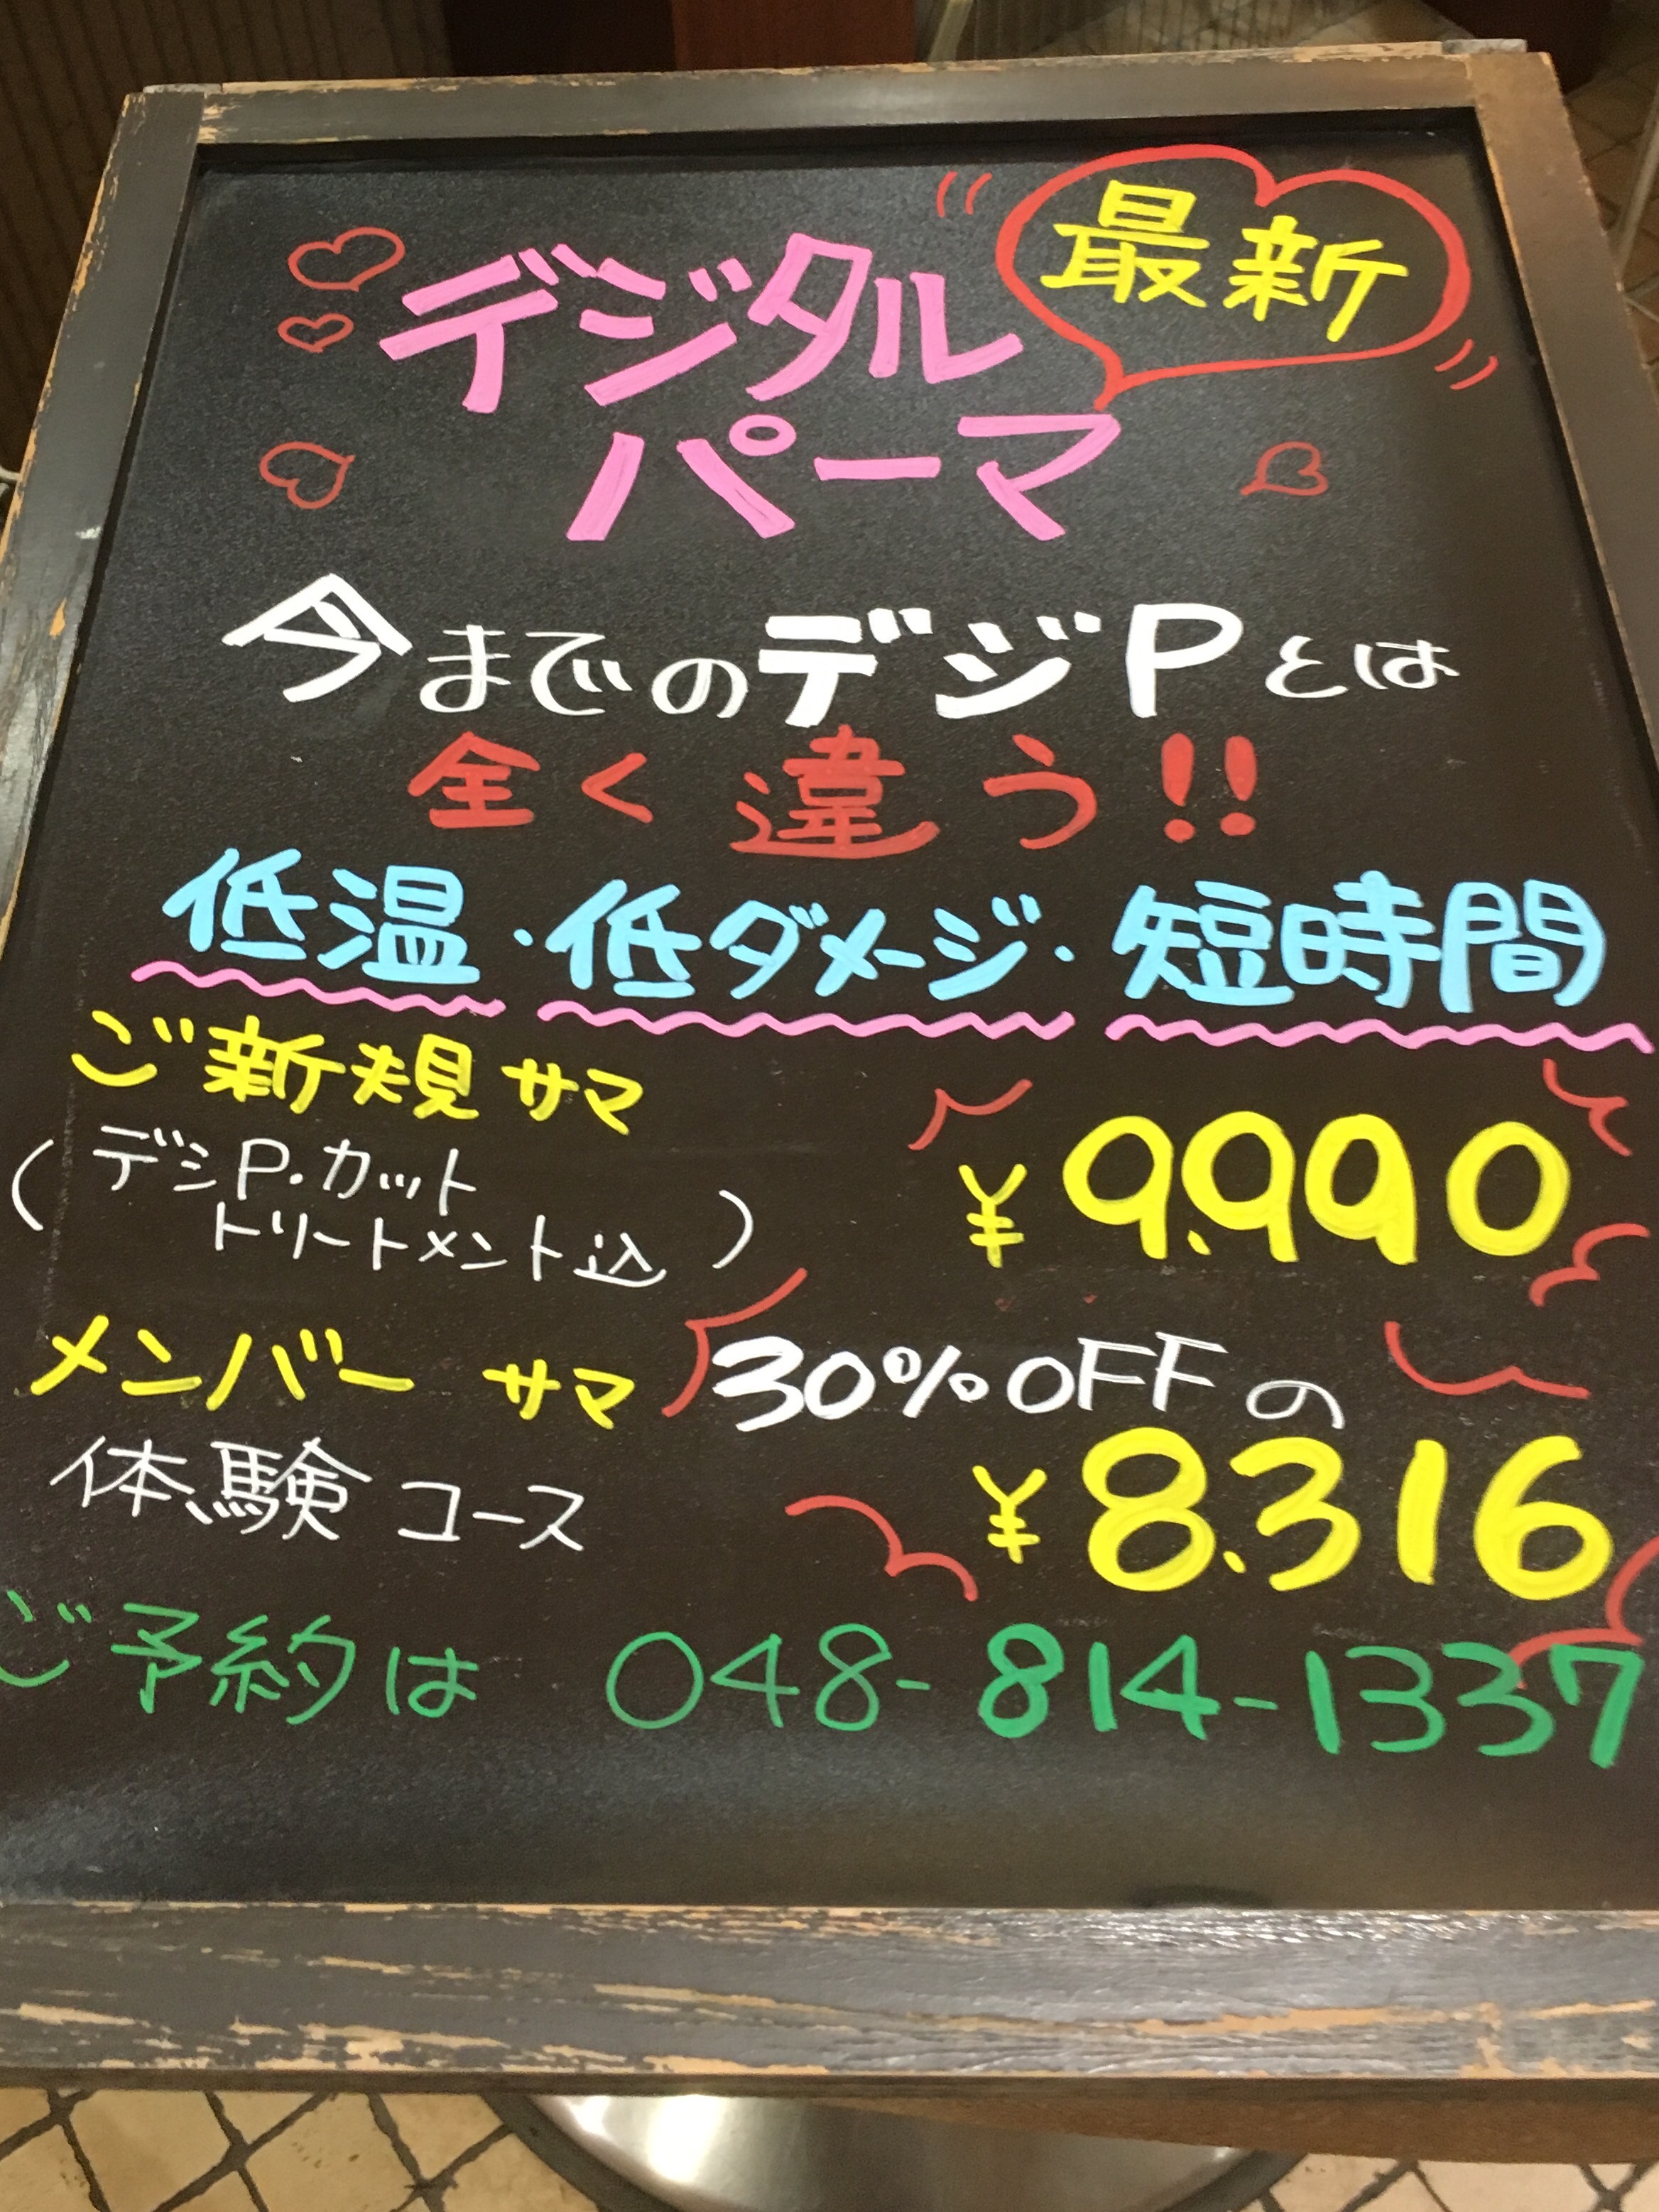 最新
デジタル
パーマ
今までのデジPとは
全く違う!!
低温・低ダメージ・短時間
ご新規サマ
(デジP.カット
トリートメント込)
¥9.990
メンバーサマ 30%OFFの
体験コース ¥8.316
ご予約は 048-814-1337